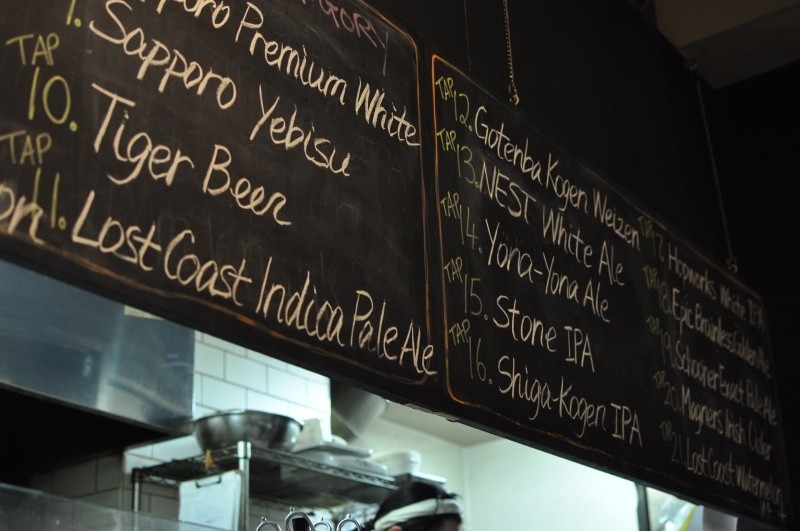 Sapporo Premium White
Sapporo Yebisu
TAP 10. Tiger Beer
TAP 11. Lost Coast Indica Pale Ale
TAP 12. Gotenba Kogen Weizen
TAP 13. NEST White Ale
TAP 14. Yona-Yona Ale
TAP 15. Stone IPA
TAP 16. Shiga-Kogen IPA
TAP 17. Hopworks White IPA
TAP 18. Epic Brainless Golden Ale
TAP 19. Schooner Exact Pale Ale
TAP 20. Magners Irish Cider
TAP 21. Lost Coast Watermelon